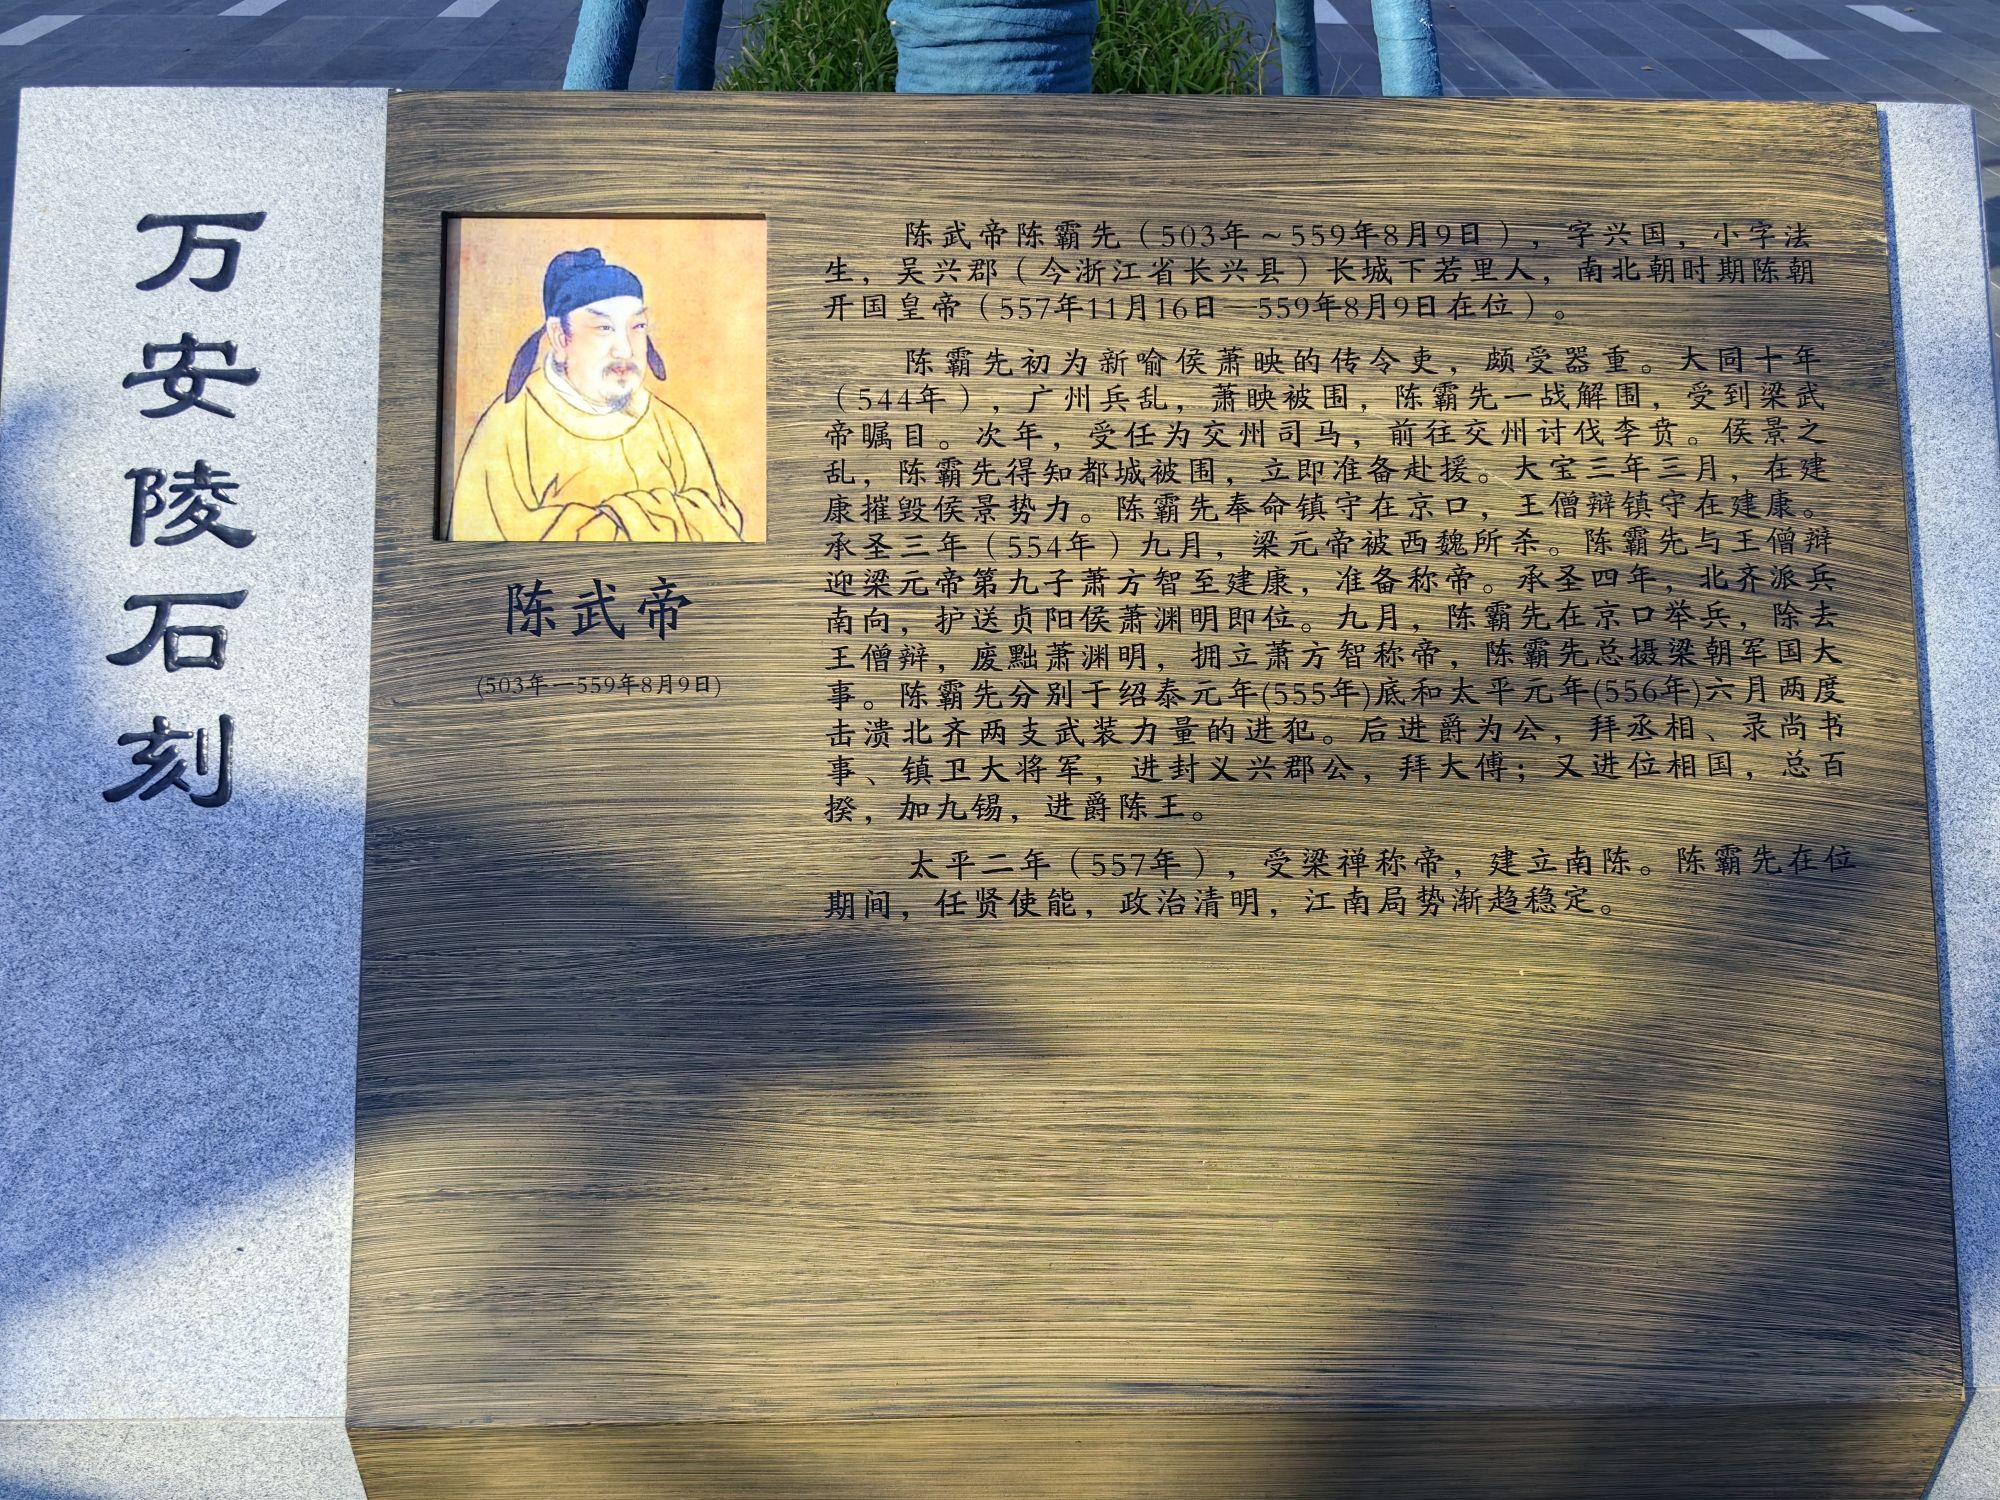 万安陵石刻
陈武帝
(503年—559年8月9日)
陈武帝陈霸先（503年～559年8月9日），字兴国，小字法
生，吴兴郡（今浙江省长兴县）长城下若里人，南北朝时期陈朝
开国皇帝（557年11月16日—559年8月9日在位）。
陈霸先初为新喻侯萧映的传令吏，颇受器重。大同十年
（544年），广州兵乱，萧映被围，陈霸先一战解围，受到梁武
帝瞩目。次年，受任为交州司马，前往交州讨伐李贲。侯景之
乱，陈霸先得知都城被围，立即准备赴援。大宝三年三月，在建
康摧毁侯景势力。陈霸先奉命镇守在京口，王僧辩镇守在建康。
承圣三年（554年）九月，梁元帝被西魏所杀。陈霸先与王僧辩
迎梁元帝第九子萧方智至建康，准备称帝。承圣四年，北齐派兵
南向，护送贞阳侯萧渊明即位。九月，陈霸先在京口举兵，除去
王僧辩，废黜萧渊明，拥立萧方智称帝，陈霸先总摄梁朝军国大
事。陈霸先分别于绍泰元年(555年)底和太平元年(556年)六月两度
击溃北齐两支武装力量的进犯。后进爵为公，拜丞相、录尚书
事、镇卫大将军，进封义兴郡公，拜大傅；又进位相国，总百
揆，加九锡，进爵陈王。
太平二年（557年），受梁禅称帝，建立南陈。陈霸先在位
期间，任贤使能，政治清明，江南局势渐趋稳定。